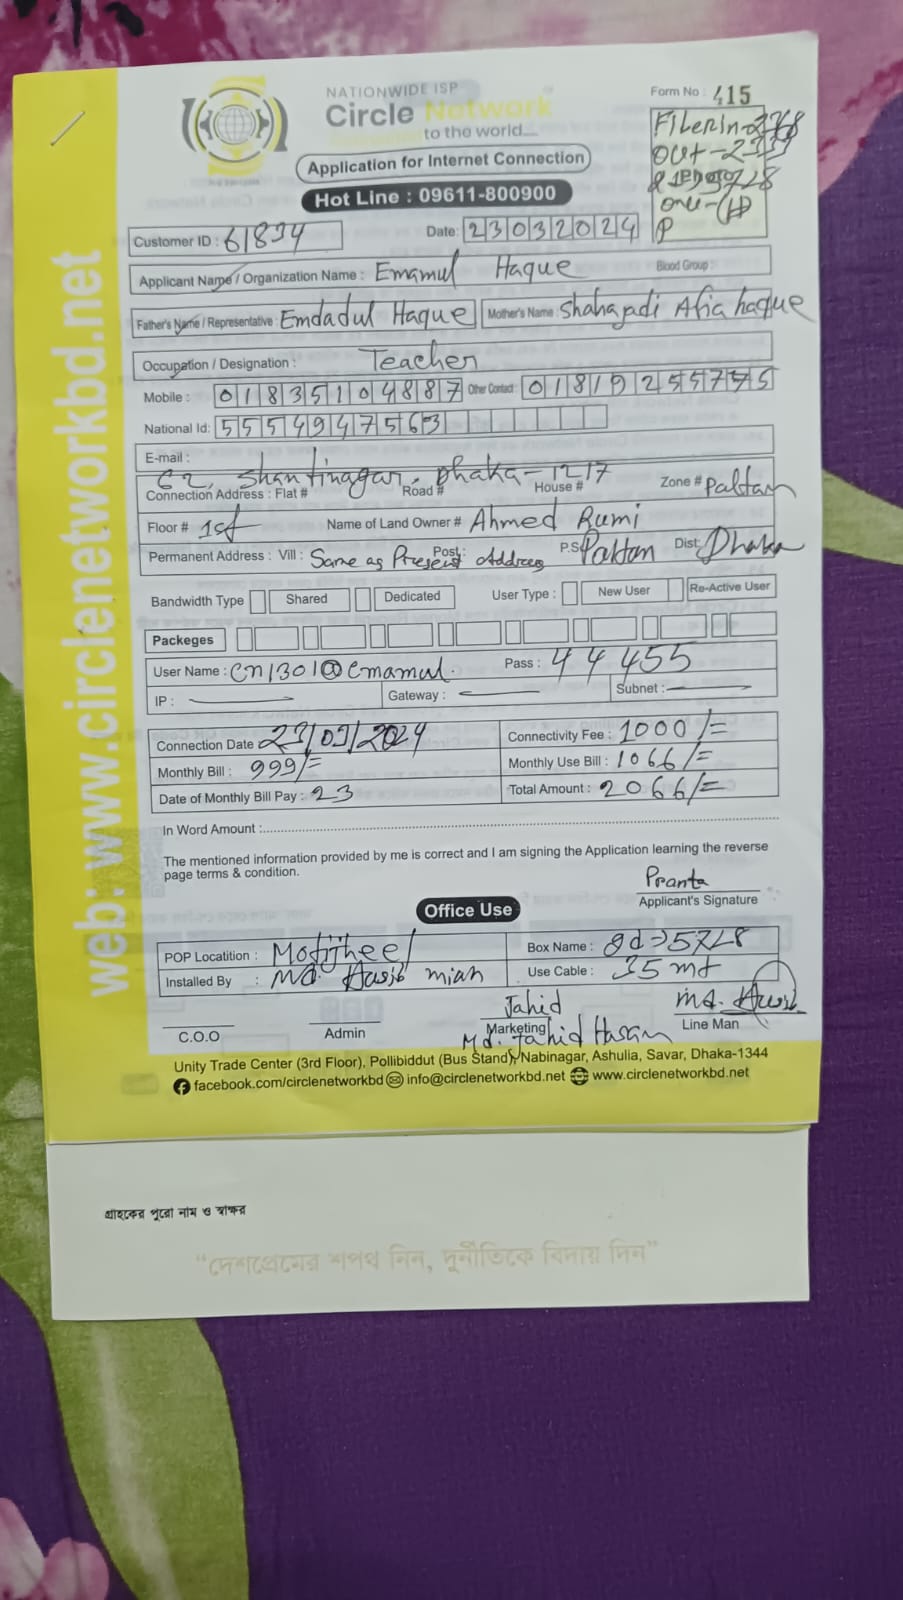 NATIONWIDE ISP
Circle Network
to the world....
Form No : 415
Application for Internet Connection
Hot Line : 09611-800900
Fiberin-2368
out-
Customer ID : 61834
Date: 23032024
Applicant Name / Organization Name : Emamul Haque Blood Group :
Father's Name / Representative : Emdadul Haque Mother's Name : Shahajadi Afia haque
Occupation / Designation : Teacher
Mobile : 01835104887 Other Contact : 01819255775
National Id: 5554947563
E-mail :
62, Shantinagar, Dhaka-1217
Connection Address : Flat # Road # House # Zone # Paltan
Floor # 1st Name of Land Owner # Ahmed Rumi
Permanent Address : Vill : Same as Present Address Post : P.S Paltan Dist: Dhaka
Bandwidth Type Shared Dedicated User Type : New User Re-Active User
Packeges
User Name : cn1301@emamul. Pass : 44455
IP : Gateway : Subnet :
Connection Date 23/03/2024 Connectivity Fee : 1000/=
Monthly Bill : 999/= Monthly Use Bill : 1066/=
Date of Monthly Bill Pay : 23 Total Amount : 2066/=
In Word Amount :
The mentioned information provided by me is correct and I am signing the Application learning the reverse
page terms & condition.
Pranta
Applicant's Signature
Office Use
POP Locatition : Motijheel Box Name : gd->5728
Installed By : Md. Hasib miah Use Cable : 35 mt
Jahid Md. Hasib
C.O.O Admin Marketing Line Man
Md. Jahid Hasan
Unity Trade Center (3rd Floor), Pollibiddut (Bus Stand), Nabinagar, Ashulia, Savar, Dhaka-1344
facebook.com/circlenetworkbd info@circlenetworkbd.net www.circlenetworkbd.net
web: www.circlenetworkbd.net
গ্রাহকের পুরো নাম ও স্বাক্ষর
“দেশপ্রেমের শপথ নিন, দুর্নীতিকে বিদায় দিন”